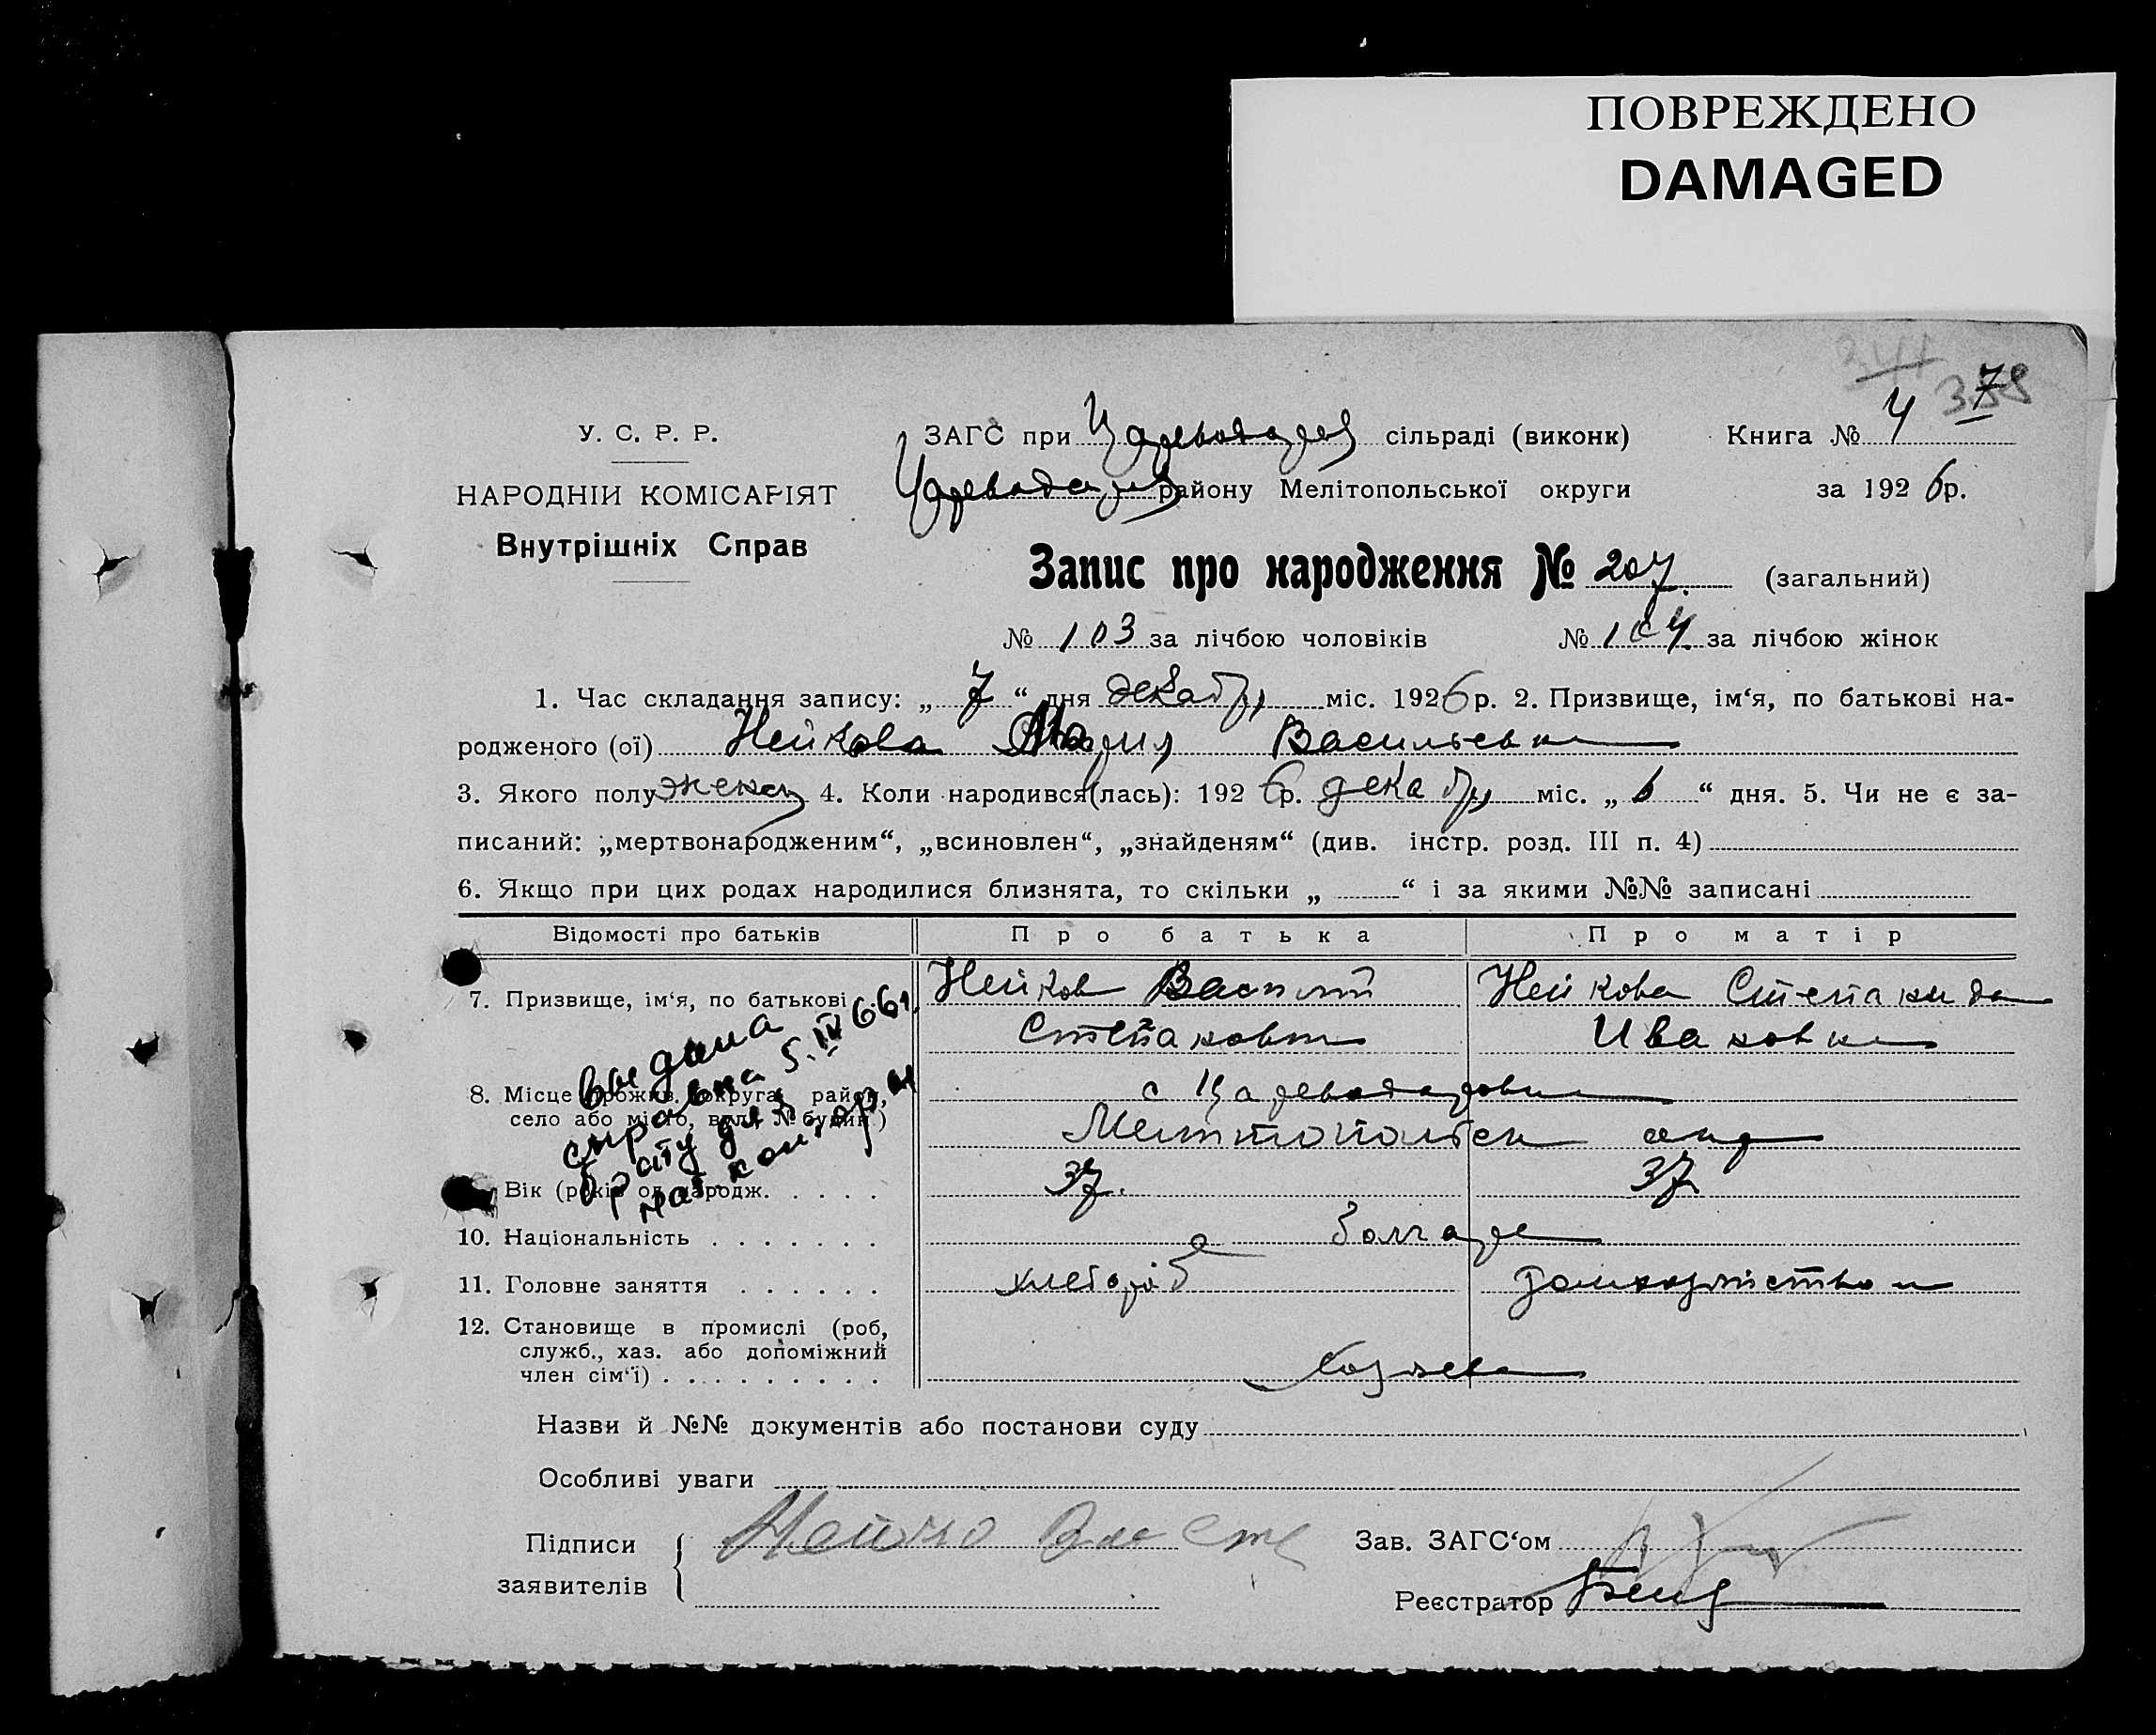 ПОВРЕЖДЕНО
DAMAGED
241
7
У. С. Р. Р.
ЗАГС при Цареводар сільраді (виконк) Книга № 4
НАРОДНІЙ КОМІСАРІЯТ
Цареводар району Мелітопольської округи за 1926 р.
Внутрішніх Справ
Запис про народження № 207. (загальний)
№ 103 за лічбою чоловіків № 104 за лічбою жінок
1. Час складання запису: „ 7 “ дня декабр міс. 1926 р. 2. Призвище, ім‘я, по батькові на-
родженого (ої) Нейкова Мария Васильевна
3. Якого полу женск 4. Коли народився(лась): 1926 р. декабр міс. „ 6 “ дня. 5. Чи не є за-
писаний: „мертвонародженим“, „всиновлен“, „знайденям“ (див. інстр. розд. III п. 4)
6. Якщо при цих родах народилися близнята, то скільки „ “ і за якими №№ записані
Відомості про батьків Про батька Про матір
7. Призвище, ім‘я, по батькові Нейков Василий Нейкова Степанида
Степанович Ивановна
выдана
справка 5.IV 66г.
брату для
нат. конторы
8. Місце прожив. округа, район, с Цареводаровка
село або місто, вул. № будин.) Мелитопольск окр
Вік (років од народж. 37. 37
10. Національність болгаре
11. Головне заняття хлебороб домохозяйством
12. Становище в промислі (роб,
служб., хаз. або допоміжний
член сім‘ї) хозяева
Назви й №№ документів або постанови суду
Особливі уваги
Підписи Нейко Зав. ЗАГС‘ом
заявителів
Реєстратор